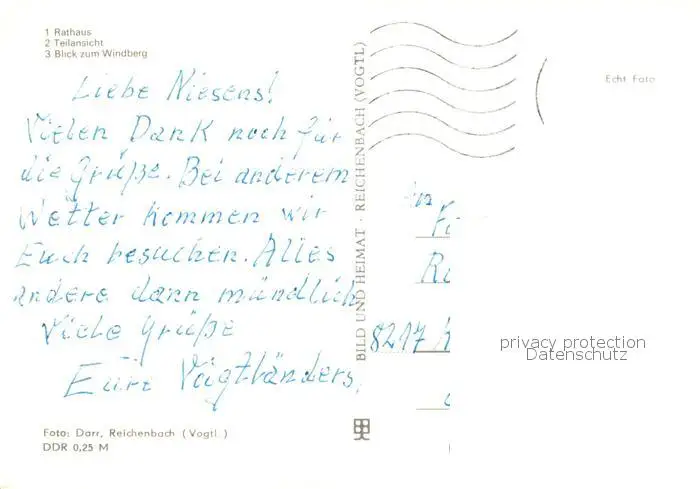 1 Rathaus
2 Teilansicht
3 Blick zum Windberg
Liebe Niesens!
Vielen Dank noch für
die Grüße. Bei anderem
Wetter kommen wir
Euch besuchen. Alles
andere dann mündlich
Viele Grüße
Eure Voigtländers.
Foto: Darr, Reichenbach (Vogtl.)
DDR 0,25 M
BILD UND HEIMAT · REICHENBACH (VOGTL)
Echt Foto
An
8217
privacy protection
Datenschutz